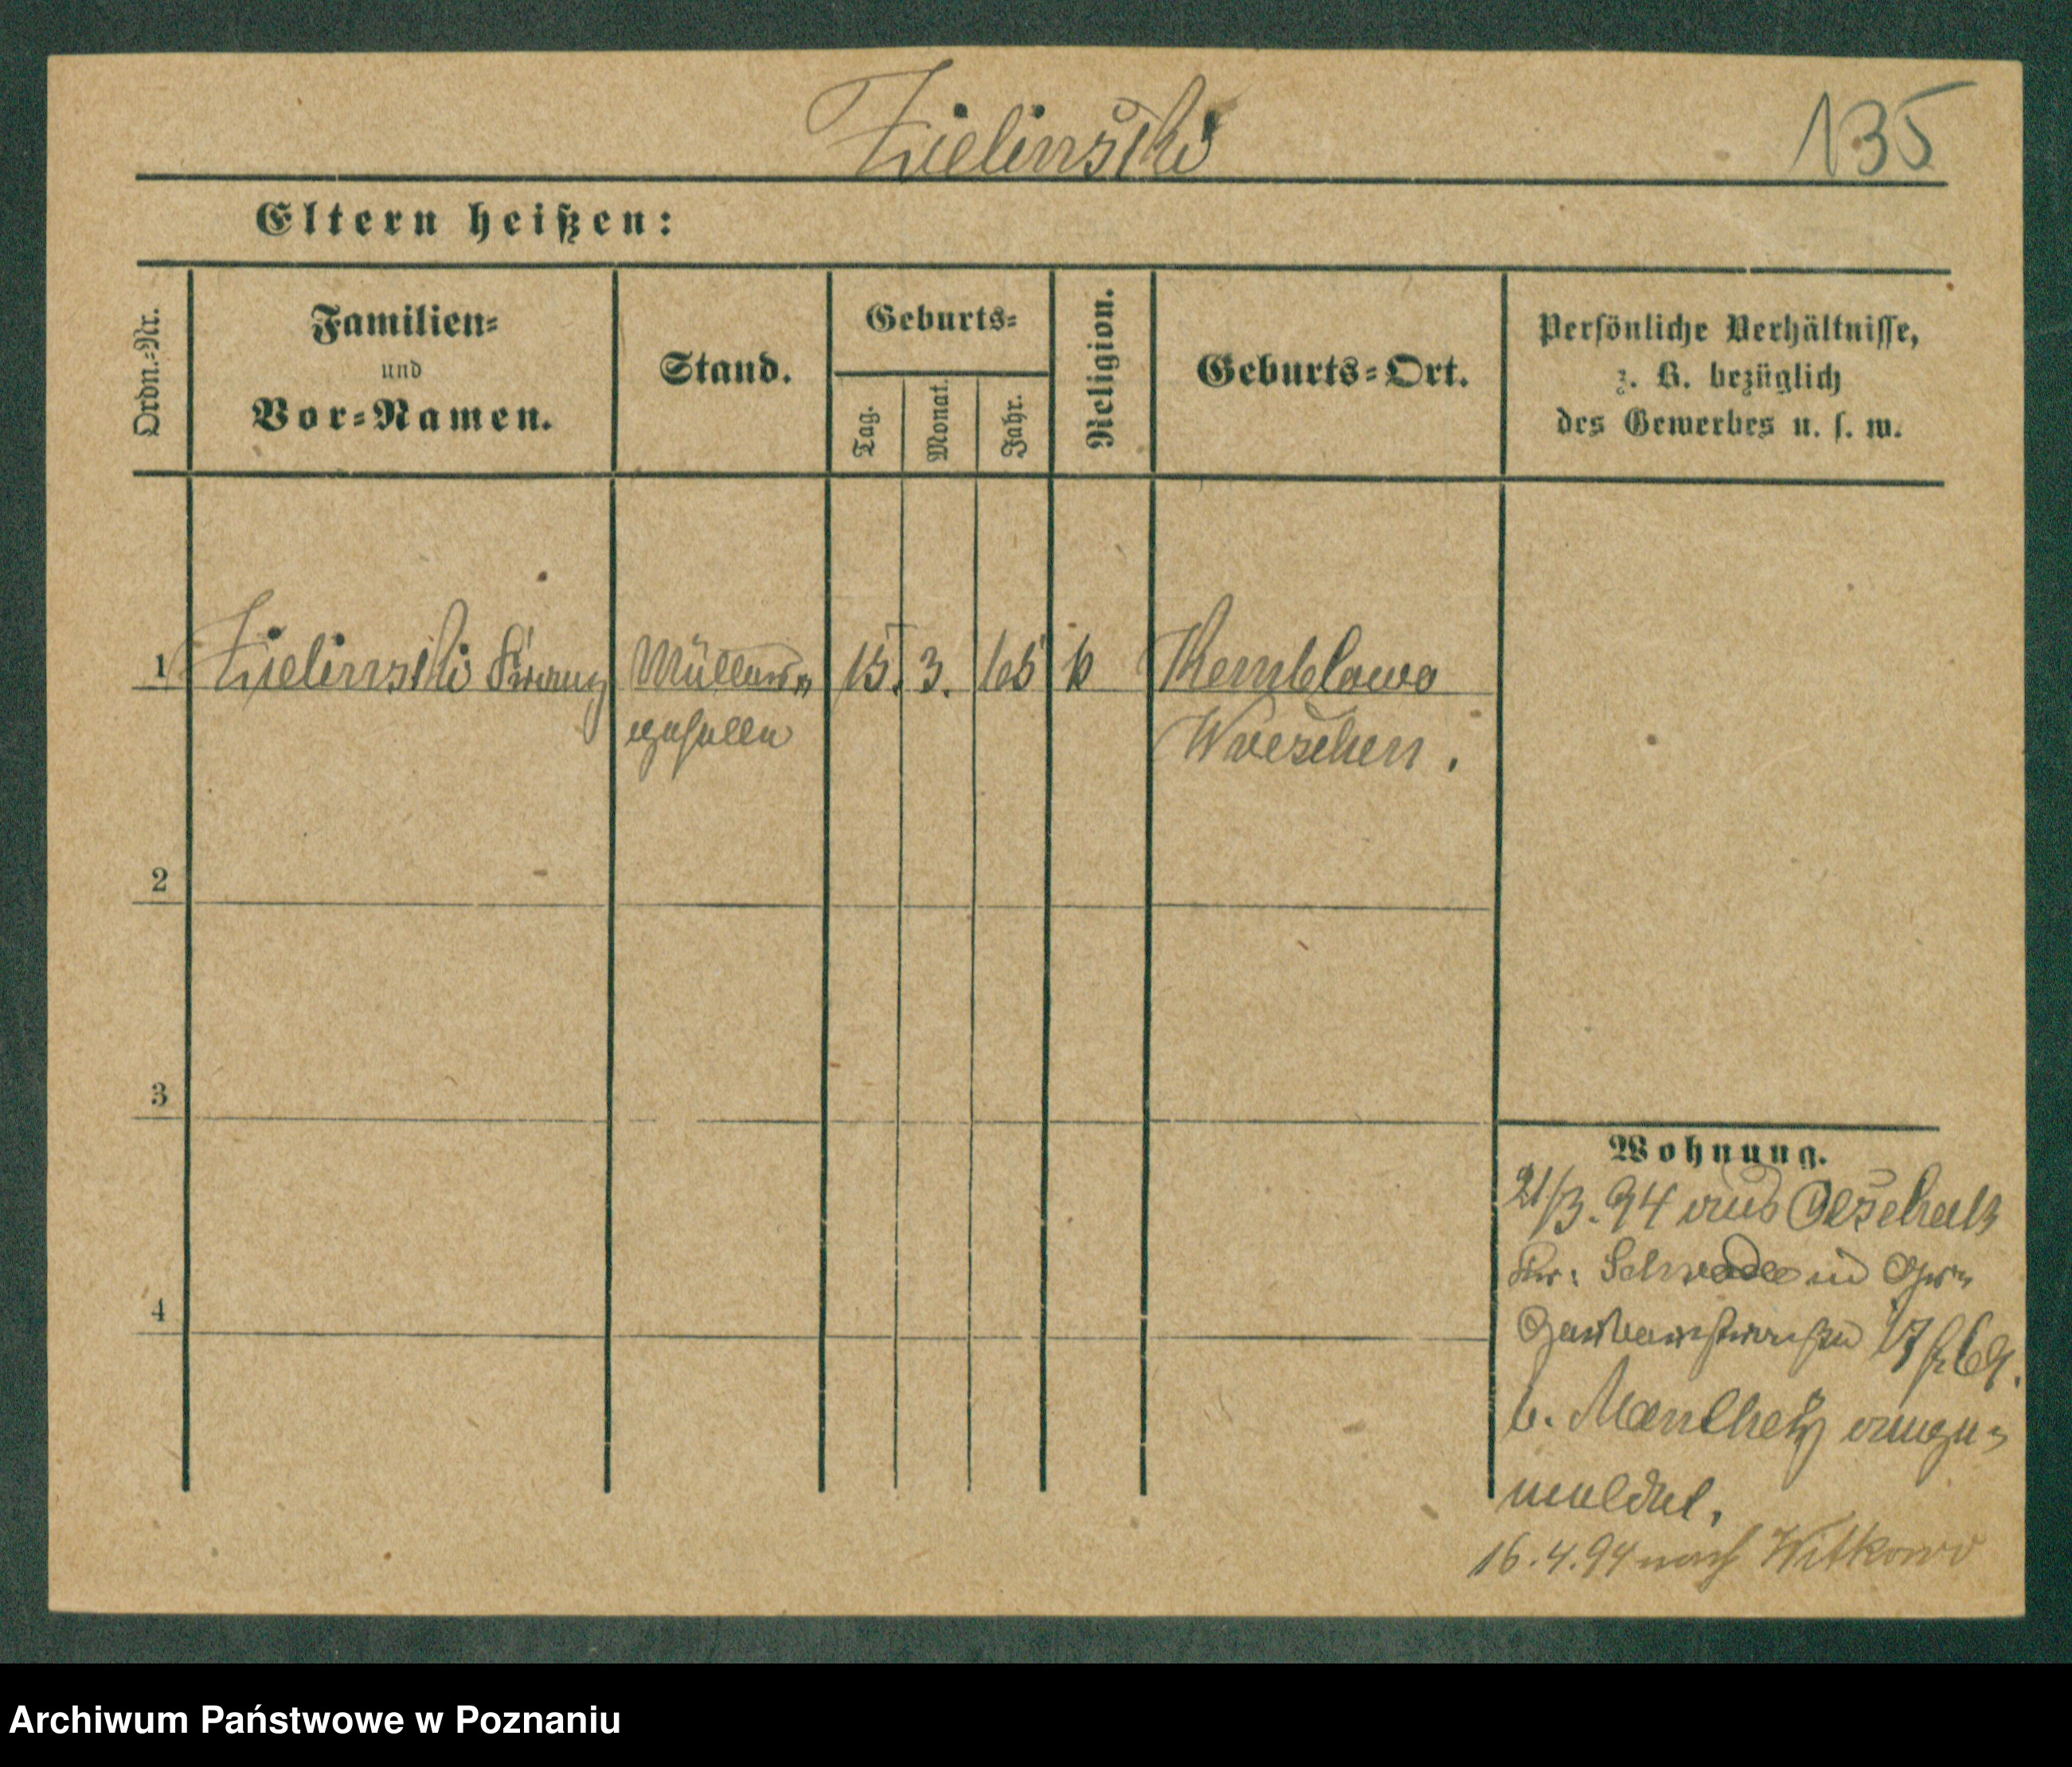 Zielinski
135
Eltern heißen:
Ordn.-Nr.
Familien-
und
Vor-Namen.
Stand.
Geburts-
Tag.
Monat.
Jahr.
Religion.
Geburts-Ort.
Persönliche Verhältnisse,
z. B. bezüglich
des Gewerbes u. s. w.
1 Zielinski Franz Müller- 15. 3. 65 k Kemblowo
geselle Wreschen.
2
3
4
Wohnung.
21/3. 94 aus
Kr: in
17
b. ange-
meldet.
16.4.94 nach Witkowo
Archiwum Państwowe w Poznaniu